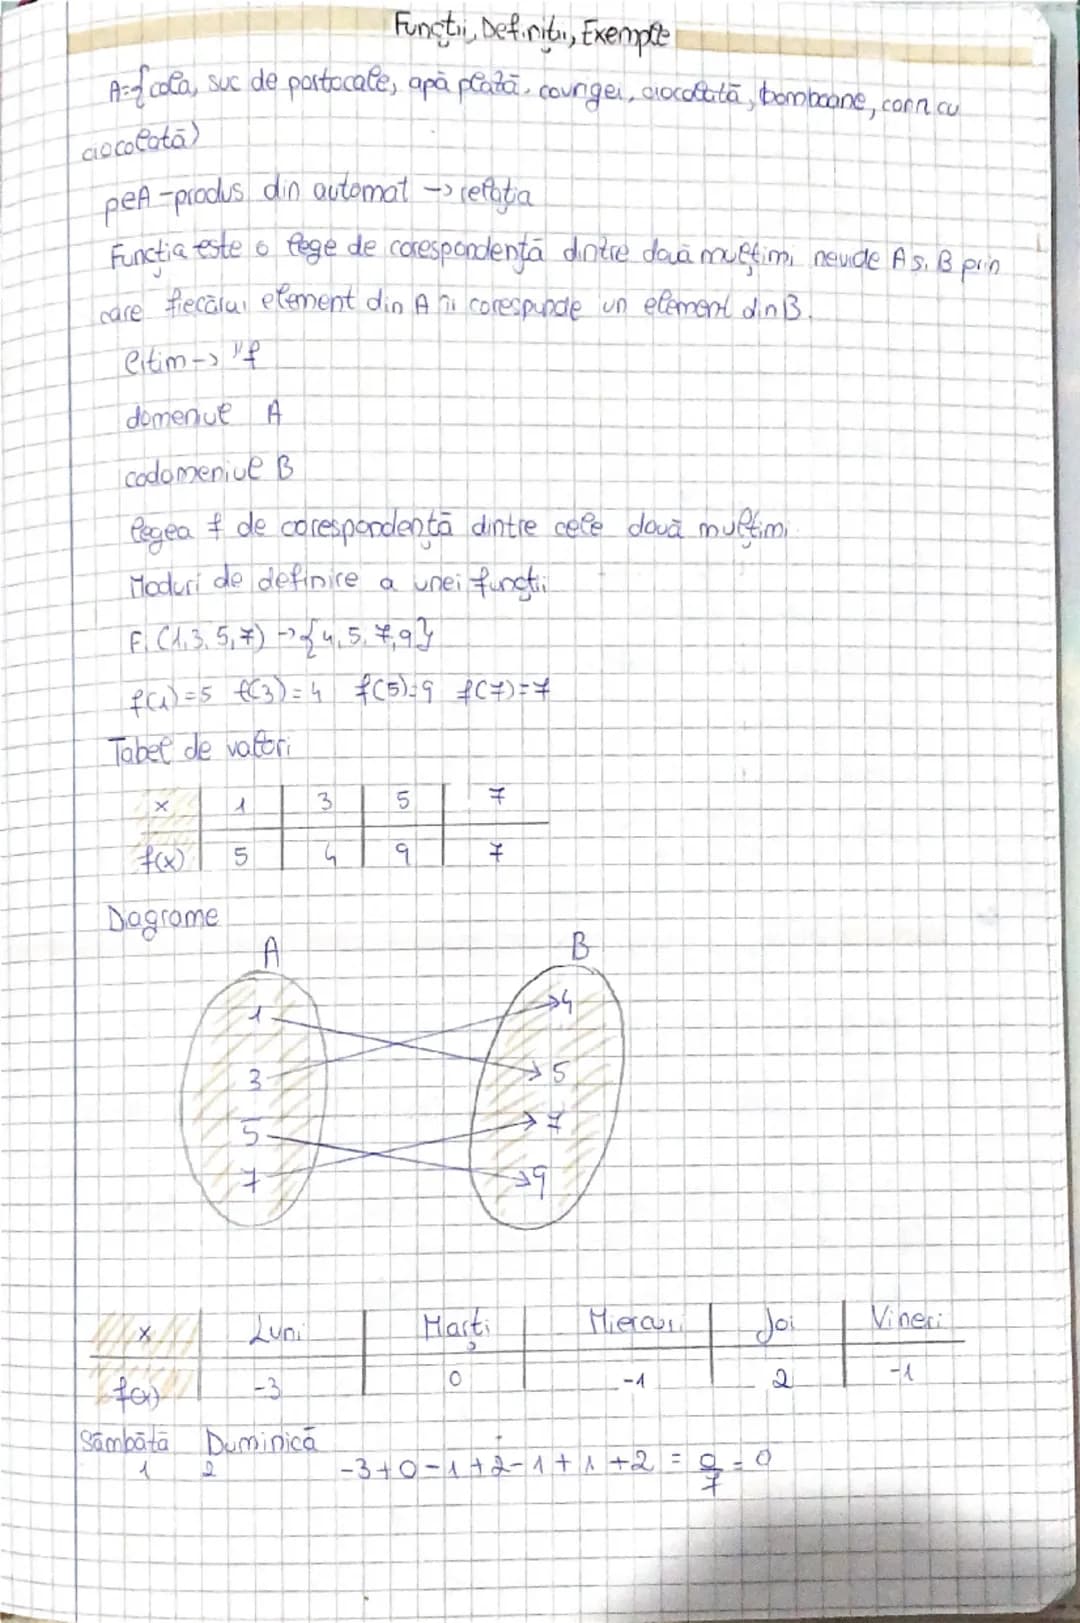 Funcții, Definiții, Exemple
A={cola, suc de portocale, apă plată, covrigei, ciocolată, bomboane, corn cu
ciocolată)
p∈A-produs din automat -> relația
Funcția este o lege de corespondență dintre două mulțimi nevide A și B prin
care fiecărui element din A îi corespunde un element din B.
Citim-> "f
domeniul A
codomeniul B
legea f de corespondență dintre cele două mulțimi
Moduri de definire a unei funcții
F. (1,3,5,7) -> {4,5,7,9}
f(1)=5 f(3)=4 f(5)=9 f(7)=7
Tabel de valori
x 1 3 5 7
f(x) 5 4 9 7
Diagrame
A B
1 4
3 5
5 7
7 9
x Luni Marți Miercuri Joi Vineri
f(x) -3 0 -1 2 -1
Sâmbătă Duminică
1 2 -3+0-1+2-1+1+2 = 0/7 = 0